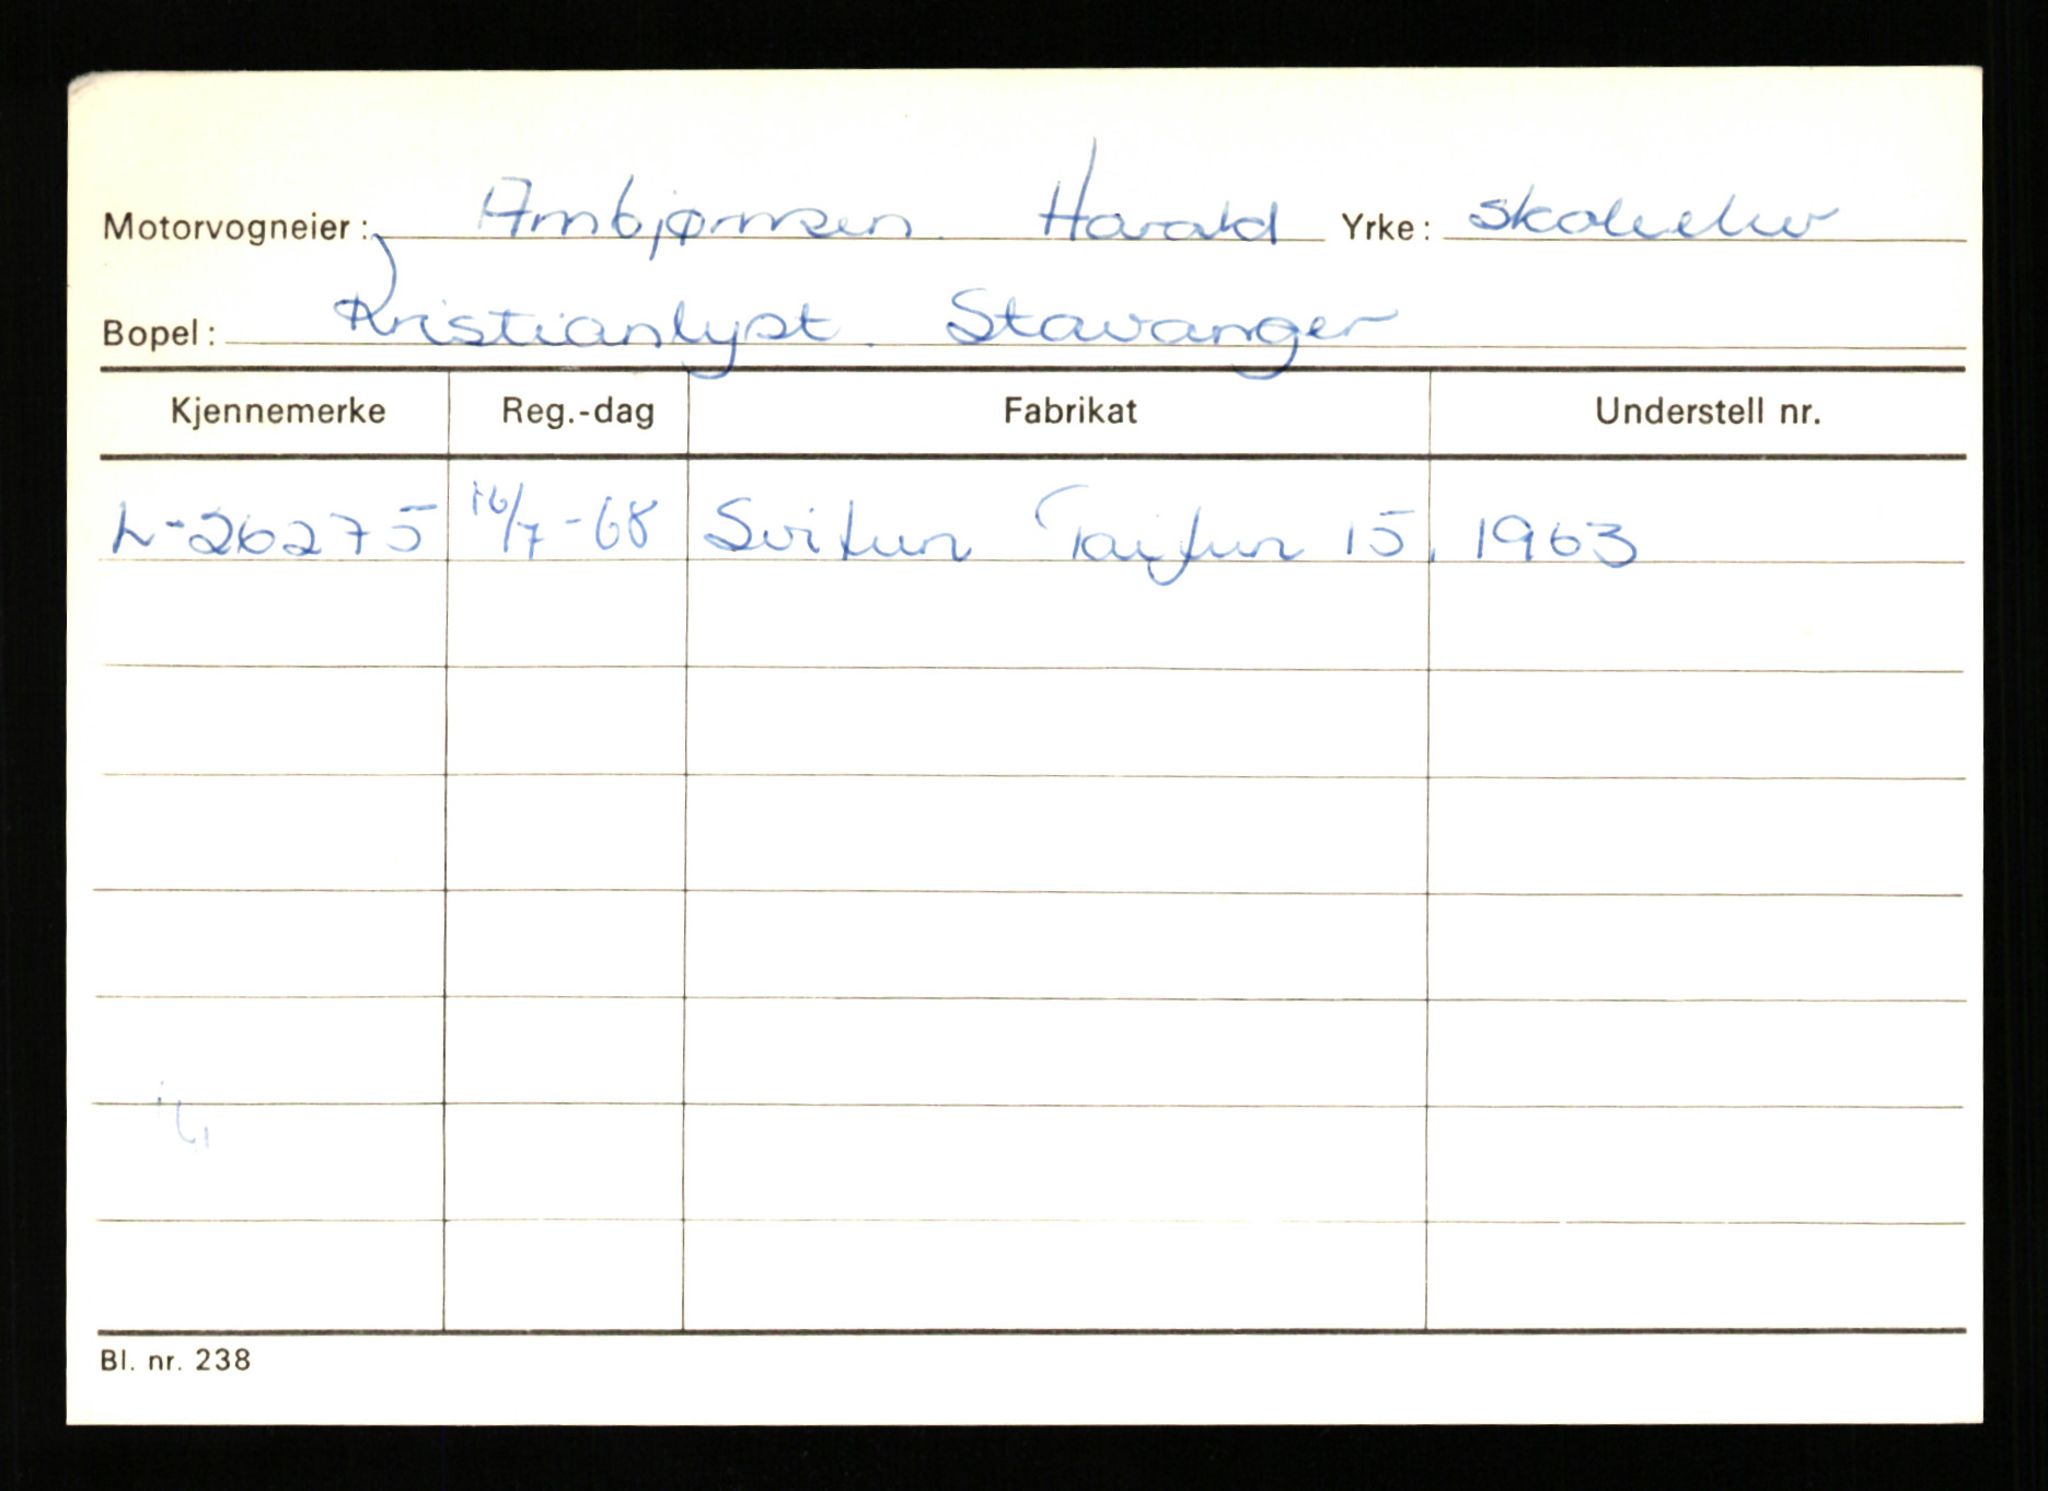 Motorvogneier: Ambjørnsen Harald Yrke: skoleelev
Bopel: Kristianlyst. Stavanger
Kjennemerke Reg.-dag Fabrikat Understell nr.
L-26275 16/7-68 Svitun Taifun 15, 1963
Bl. nr. 238